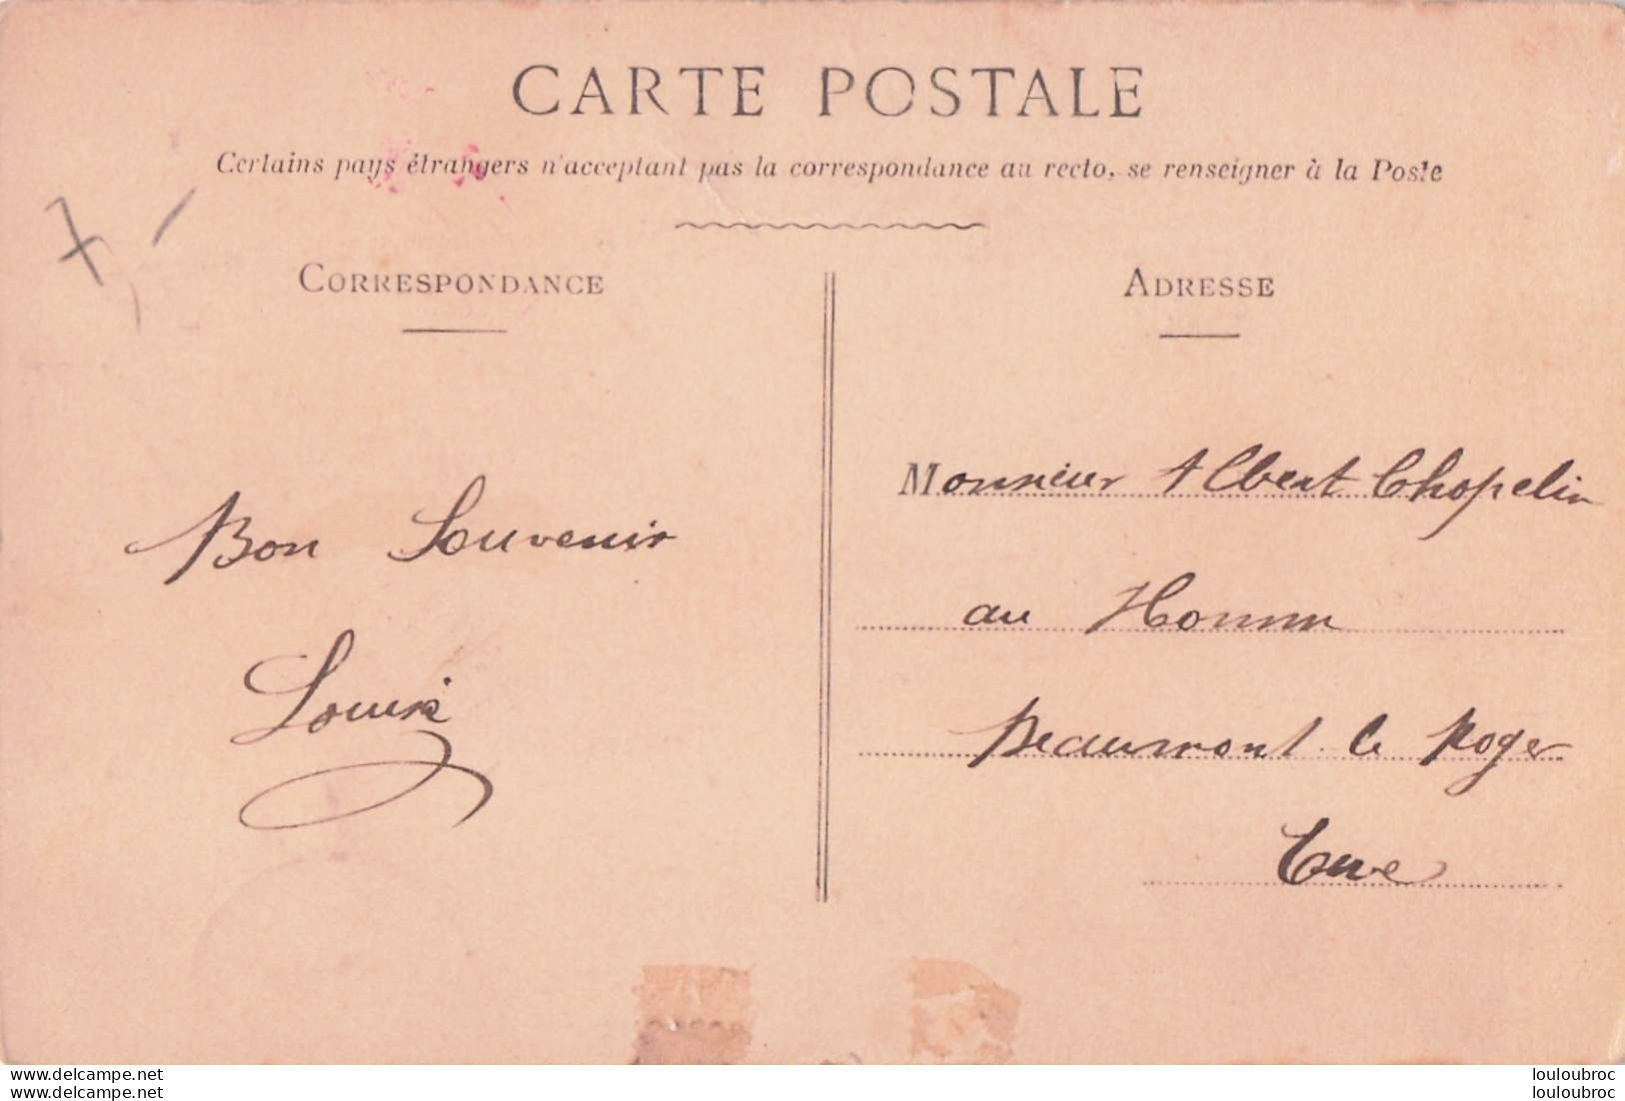 CARTE POSTALE
Certains pays étrangers n'acceptant pas la correspondance au recto, se renseigner à la Poste
7,-
CORRESPONDANCE
ADRESSE
Bon Souvenir
Monsieur Albert Chopelin
au
Beaumont le Roger
Eure
www.delcampe.net
louloubroc
www.delcampe.net
louloubroc